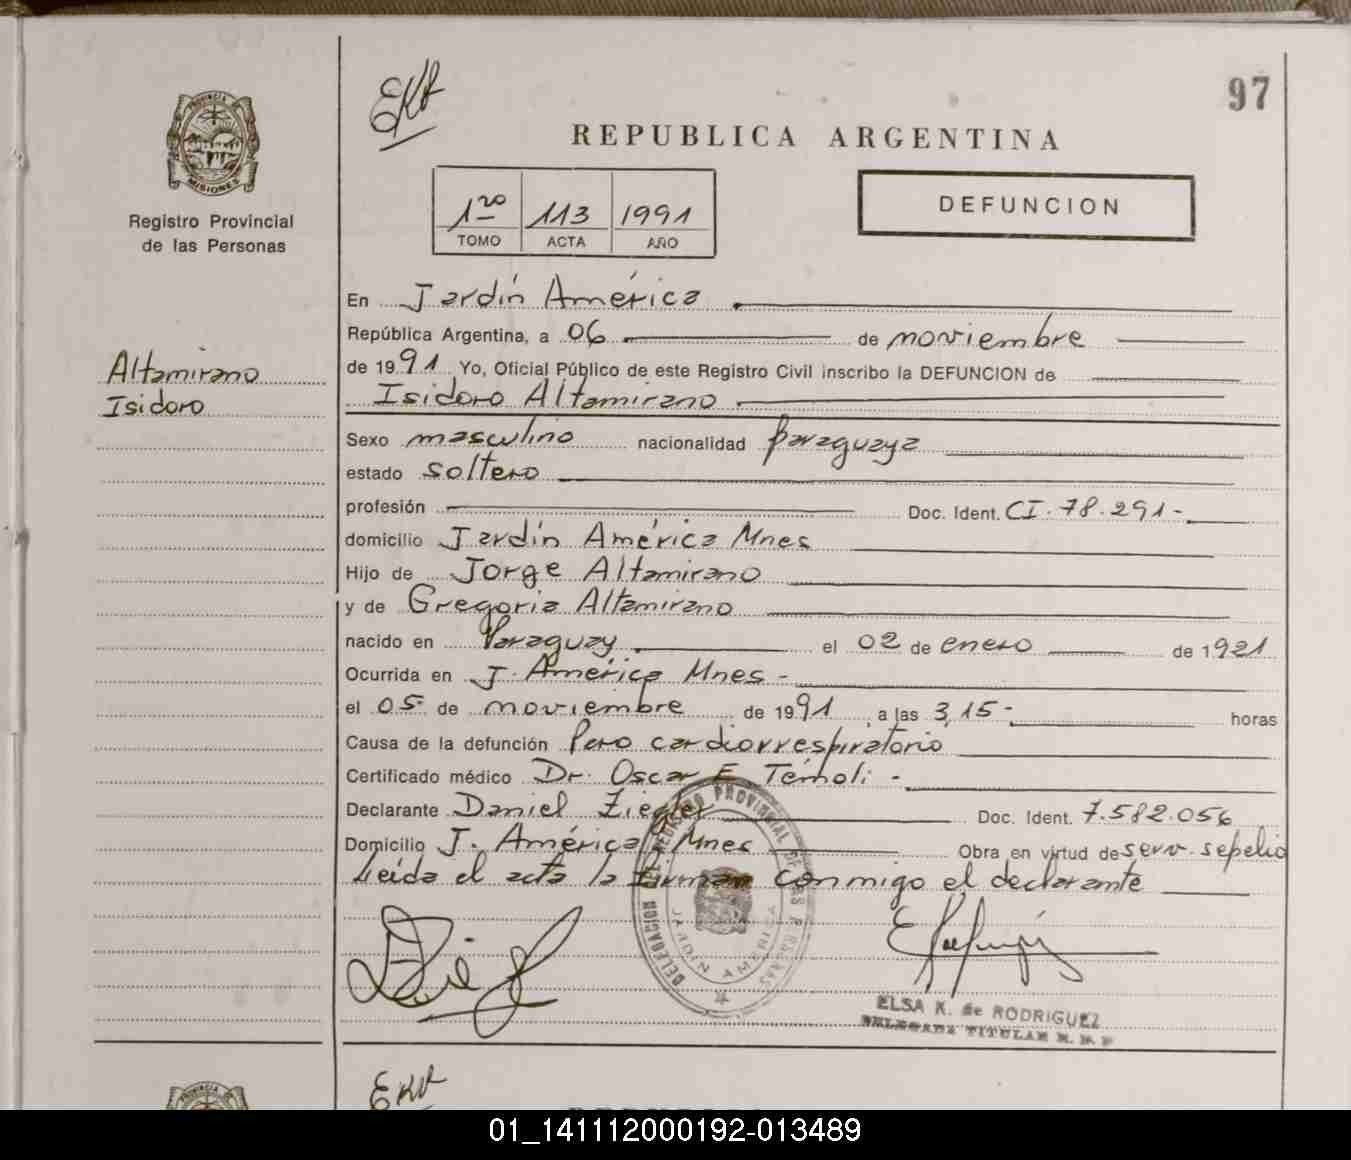 97
EKR
REPUBLICA ARGENTINA
PROVINCIA DE
MISIONES
Registro Provincial
de las Personas
1ro 113 1991
TOMO ACTA AÑO
DEFUNCION
En Jardín América
República Argentina, a 06 de noviembre
de 1991 Yo, Oficial Público de este Registro Civil inscribo la DEFUNCION de
Isidoro Altamirano
Altamirano
Isidoro
Sexo masculino nacionalidad paraguaya
estado soltero
profesión Doc. Ident. CI. 78.291-
domicilio Jardín América Mnes
Hijo de Jorge Altamirano
y de Gregoria Altamirano
nacido en Paraguay el 02 de enero de 1921
Ocurrida en J. América Mnes -
el 05 de noviembre de 1991, a las 3,15- horas
Causa de la defunción Paro cardiorrespiratorio
Certificado médico Dr. Oscar E. Témoli -
Declarante Daniel Ziegler Doc. Ident. 7.582.056
Domicilio J. América Mnes Obra en virtud de serv. sepelio
Leída el acta la firman conmigo el declarante
JARDIN AMERICA
ELSA K. de RODRIGUEZ
DELEGADA TITULAR R. P. P.
01_141112000192-013489